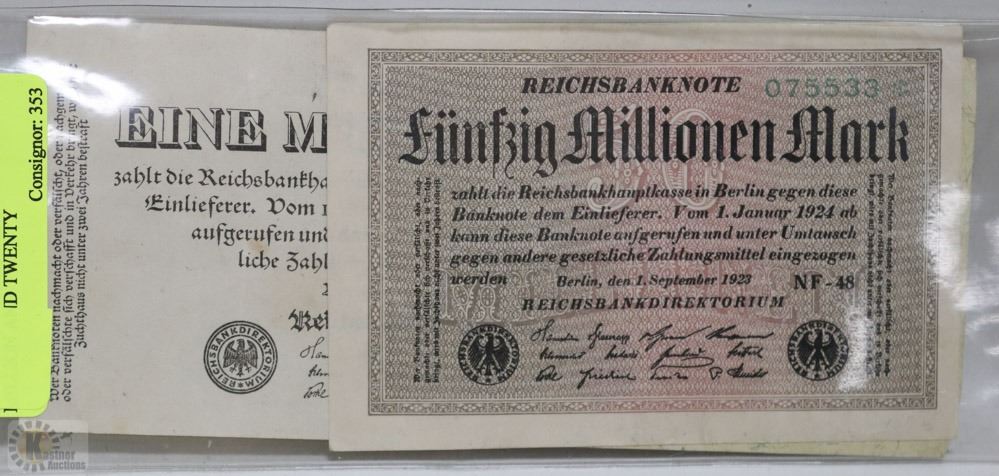 Consignor: 353
D TWENTY
Wer Banknoten nachmacht oder verfälscht, oder nachgem
oder verfälschte sich verschafft und in Verkehr bringt, w
Zuchthaus nicht unter zwei Jahren bestraft
EINE M
zahlt die Reichsbankha
Einlieferer. Vom 1
aufgerufen und
liche Zahl
Rei
REICHSBANKDIREKTORIUM
REICHSBANKNOTE
075533
Fünfzig Millionen Mark
50
zahlt die Reichsbankhauptkasse in Berlin gegen diese
Banknote dem Einlieferer. Vom 1. Januar 1924 ab
kann diese Banknote aufgerufen und unter Umtausch
gegen andere gesetzliche Zahlungsmittel eingezogen
werden Berlin, den 1. September 1923 NF-48
REICHSBANKDIREKTORIUM
REICHSBANKDIREKTORIUM
REICHSBANKDIREKTORIUM
Kastner
Auctions